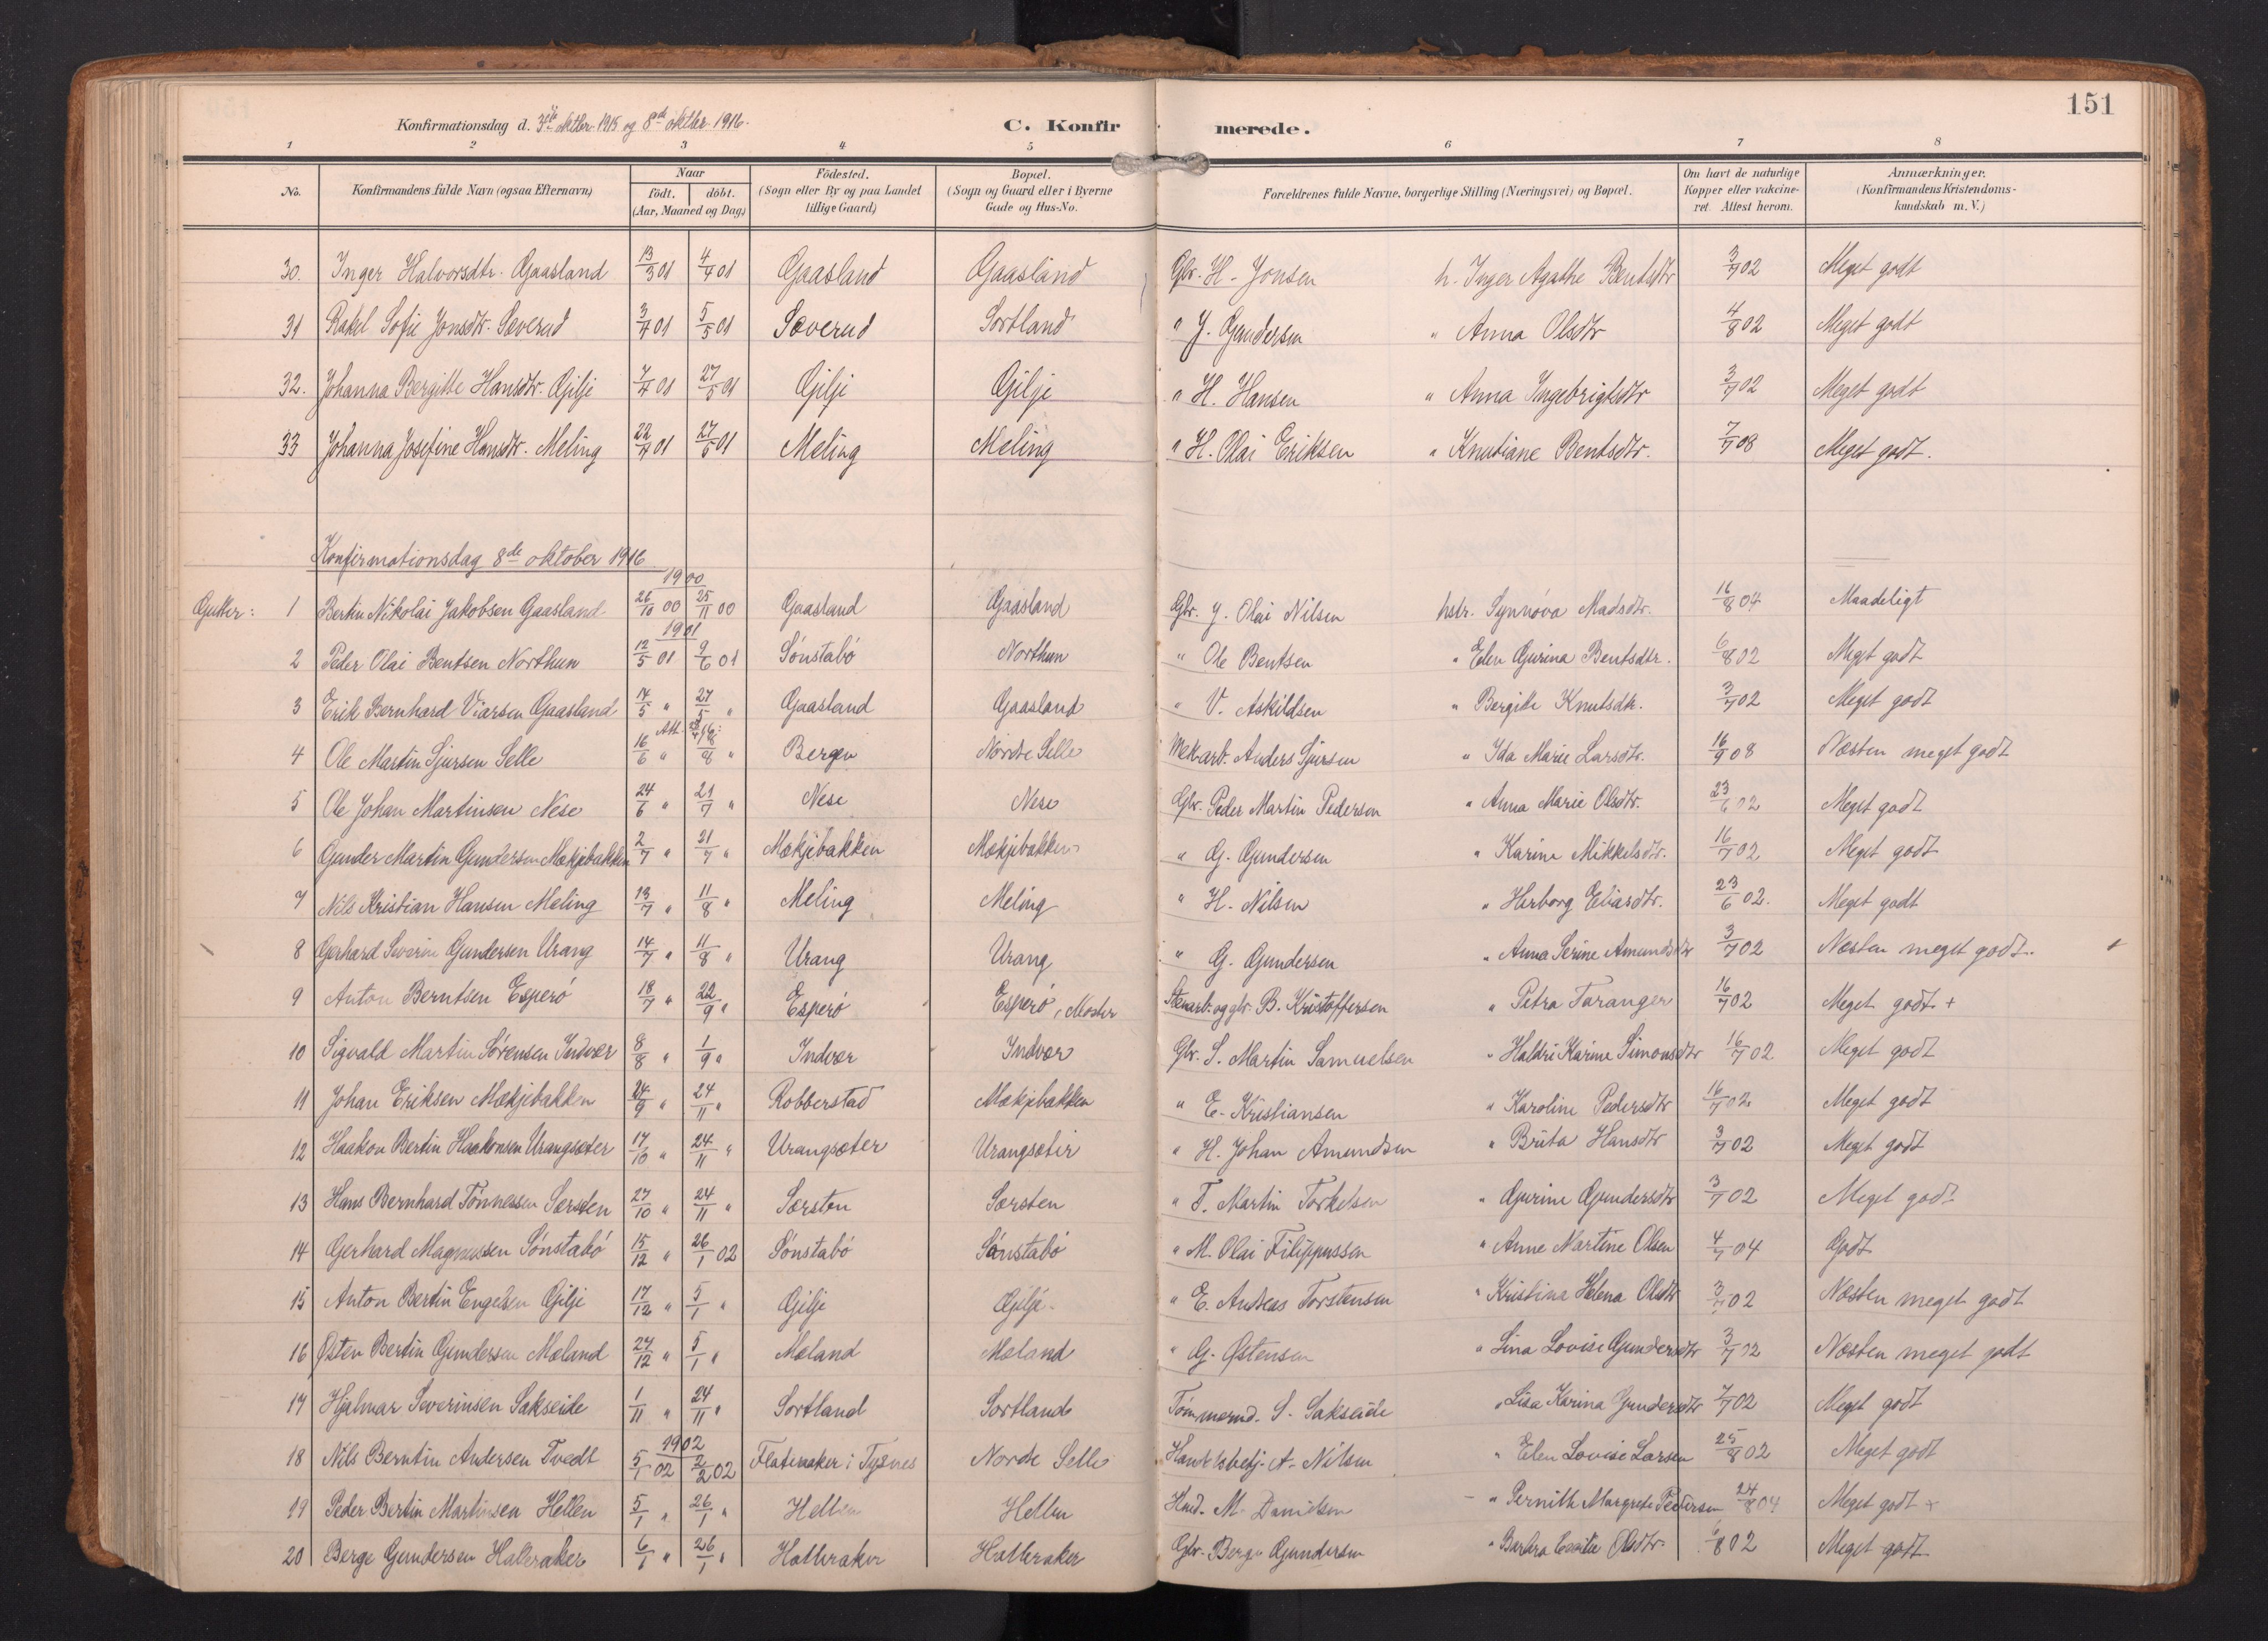 151
Konfirmationsdag d. 3de oktbr. 1915 og 8de oktbr. 1916. C. Konfirmerede.
1 2 3 4 5 6 7 8
No. Konfirmandens fulde Navn (ogsaa Efternavn) Naar födt. döbt. (Aar, Maaned og Dag) Födested. (Sogn eller By og paa Landet tillige Gaard) Bopæl. (Sogn og Gaard eller i Byerne Gade og Hus-No. Forældrenes fulde Navne, borgerlige Stilling (Næringsvei) og Bopæl. Om havt de naturlige Kopper eller vakcineret. Attest herom. Anmærkninger. (Konfirmandens Kristendomskundskab m. V.)
30. Inger Halvorsdtr. Gaasland 13/3 01 4/4 01 Gaasland Gaasland Gbr. H. Jonsen h. Inger Agathe Bentsdtr 3/7 02 Meget godt
31 Rakel Sofie Jonsdtr. Sæverud 3/4 01 5/5 01 Sæverud Sortland " J. Gundersen " Anna Olsdtr 4/8 02 Meget godt
32. Johanna Bergitte Hansdtr. Gilje 7/4 01 27/5 01 Gilje Gilje " H. Hansen " Anna Ingebrigtsdtr 3/7 02 Meget godt
33 Johanna Josefine Hansdtr. Meling 22/4 01 27/5 01 Meling Meling " H. Olai Eriksen " Knutiane Bentsdtr. 7/7 08 Meget godt.
Konfirmationsdag 8de oktober 1916
1900
Gutter: 1 Bertin Nikolai Jakobsen Gaasland 26/10 00 25/11 00 Gaasland Gaasland Gbr. J. Olai Nilsen hstr. Synnøva Madsdtr. 16/8 04 Maadeligt
1901
2 Peder Olai Bentsen Northun 12/5 01 9/6 01 Sønstabø Northun " Ole Bentsen " Elen Gurina Bentsdtr. 6/8 02 Meget godt
3 Erik Bernhard Viarsen Gaasland 14/5 " 27/5 " Gaasland Gaasland " V. Askildsen " Bergite Knutsdtr. 3/7 02 Meget godt
4 Ole Martin Sjursen Selle 16/6 " Att. 18/8 " Bergen Nordre Selle Mek.arb. Anders Sjursen " Ida Marie Larsdtr. 16/9 08 Næsten meget godt
5 Ole Johan Martinsen Nese 24/6 " 21/7 " Nese Nese Gbr. Peder Martin Pedersen " Anna Marie Olsdtr. 23/6 02 Meget godt
6 Gunder Martin Gundersen Mækjebakken 2/7 " 21/7 " Mækjebakken Mækjebakken " G. Gundersen " Karina Mikkelsdtr. 16/7 02 Meget godt
7 Nils Kristian Hansen Meling 13/7 " 11/8 " Meling Meling " H. Nilsen " Herborg Eliasdtr. 23/6 02. Meget godt
8 Gerhard Severin Gundersen Urang 14/7 " 11/8 " Urang Urang " G. Gundersen " Anna Serine Amundsdtr 3/7 02 Næsten meget godt.
9 Anton Berntsen Esperø 18/7 " 22/9 " Esperø Esperø, Moster Stenarb. og gbr. B. Kristoffersen " Petra Taranger 16/7 02 Meget godt +
10 Sigvald Martin Sørensen Indvær 8/8 " 1/9 " Indvær Indvær Gbr. S. Martin Samuelsen " Haldri Karine Simonsdtr 16/7 02 Meget godt
11 Johan Eriksen Mækjebakken 24/9 " 24/11 " Robberstad Mækjebakken " E. Kristiansen " Karoline Pedersdtr 16/7 02 Meget godt
12 Haakon Bertin Haakonsen Urangsæter 17/10 " 24/11 " Urangsæter Urangsæter " H. Johan Amundsen " Brita Hansdtr 3/7 02 Meget godt
13 Hans Bernhard Tønnessen Særsten 27/10 " 24/11 " Særsten Særsten " T. Martin Torkelsen " Gurine Gundersdtr 3/7 02 Meget godt
14 Gerhard Magnussen Sønstabø 15/12 " 26/1 02 Sønstabø Sønstabø " M. Olai Filippussen " Anne Martine Olsen 4/7 04 Godt
15 Anton Bertin Engelsen Gilje 17/12 " 5/1 " Gilje Gilje. " E. Andreas Torstensen " Kristina Helena Olsdtr 3/7 02 Næsten meget godt
16 Østen Bertin Gundersen Mæland 27/12 " 5/1 " Mæland Mæland " G. Østensen " Lina Lovise Gundersdtr 3/7 02 Næsten meget godt
17 Hjalmar Severinsen Sakseide 1/11 " 24/11 " Sortland Sortland Tømmermd. S. Sakseide " Lisa Karina Gundersdtr 7/7 02 Meget godt
1902
18 Nils Berntin Andersen Tvedt 5/1 02 2/2 02 Flateraker i Tysnes Nordre Selle Handelsbetj. A. Nilsen " Elen Lovise Larsen 25/8 02 Meget godt
19 Peder Bertin Martinsen Hellen 5/1 " 26/1 " Hellen Hellen Husd. M. Danielsen " Pernille Margrete Pedersen 24/8 04 Meget godt +
20 Berge Gundersen Halleraker 6/1 " 26/1 " Halleraker Halleraker Gbr. Berge Gundersen " Barbra Cecilie Olsdtr. 6/8 02 Meget godt